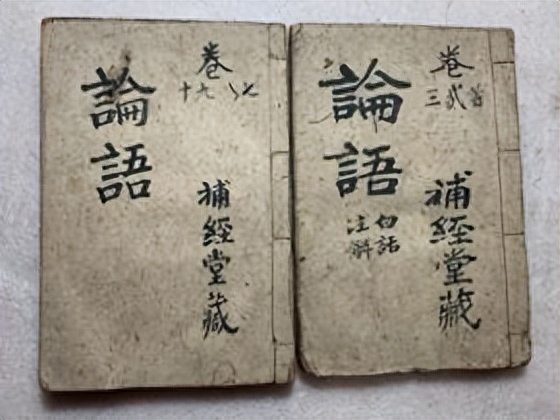 卷
首弍三
補經堂藏
論語
白話
注解
卷
七八九十
補經堂藏
論語